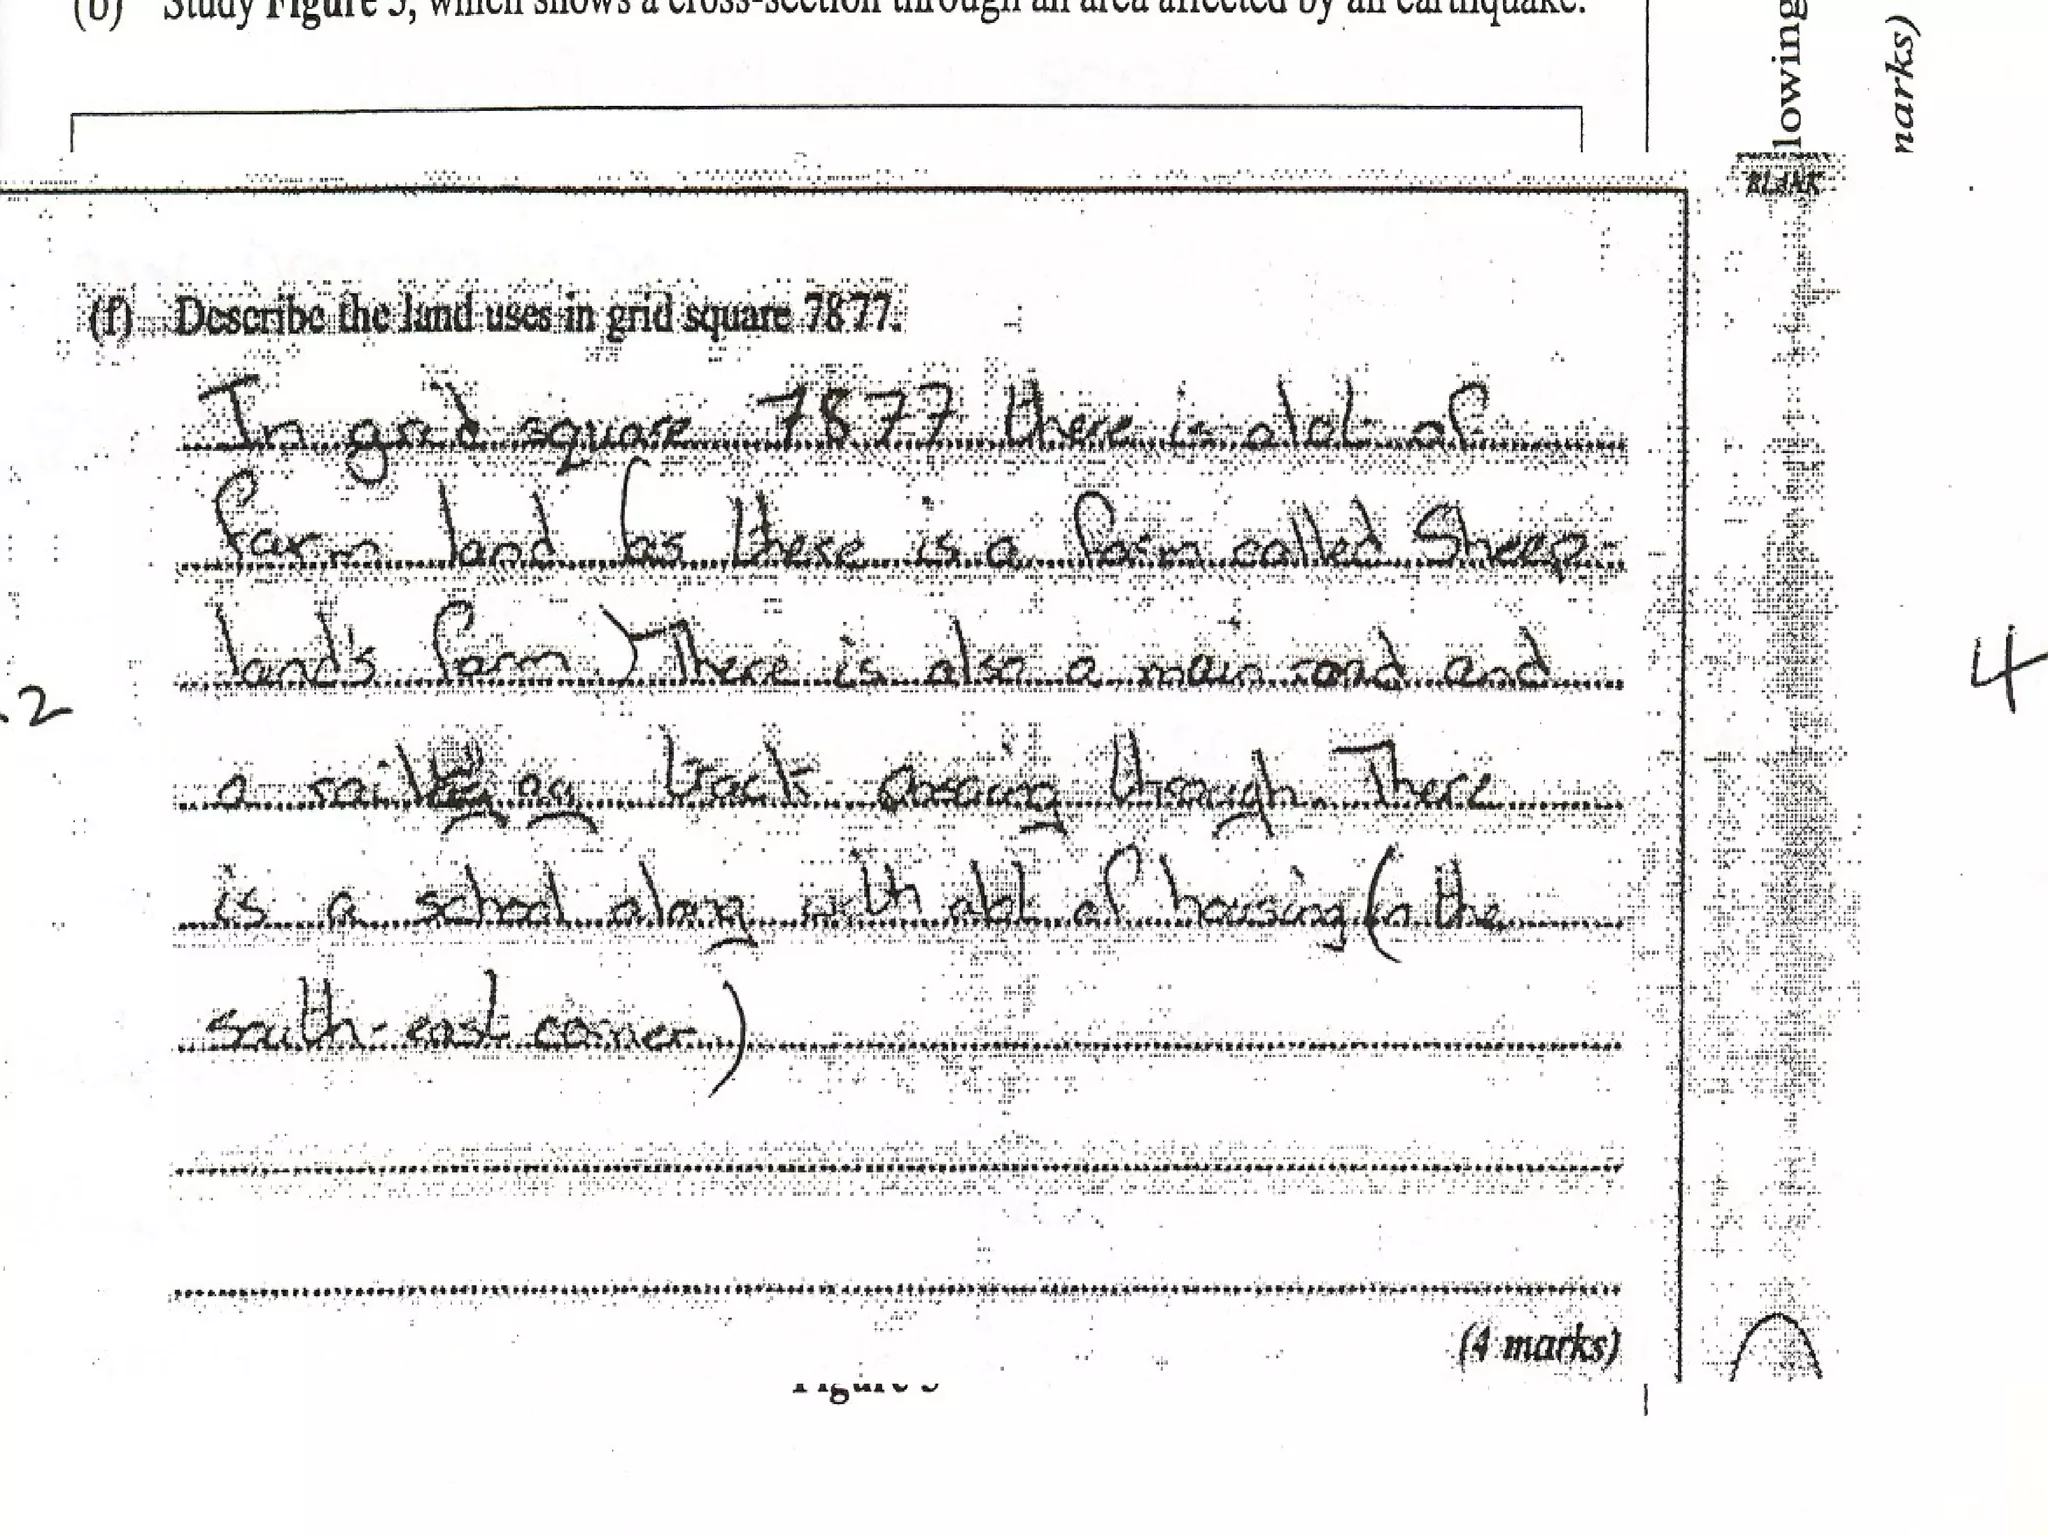 (b) Study Figure 5, which shows a cross-section through an area affected by an earthquake.
lowing
marks)
BLANK
(f) Describe the land uses in grid square 7877.
In grid square 7877 there is alot of
farm land (as there is a farm called Sheep-
land's farm.) There is also a main road and
a railway track crossing through. There
is a school along with alot of housing (in the
south-east corner.)
2
4
(4 marks)